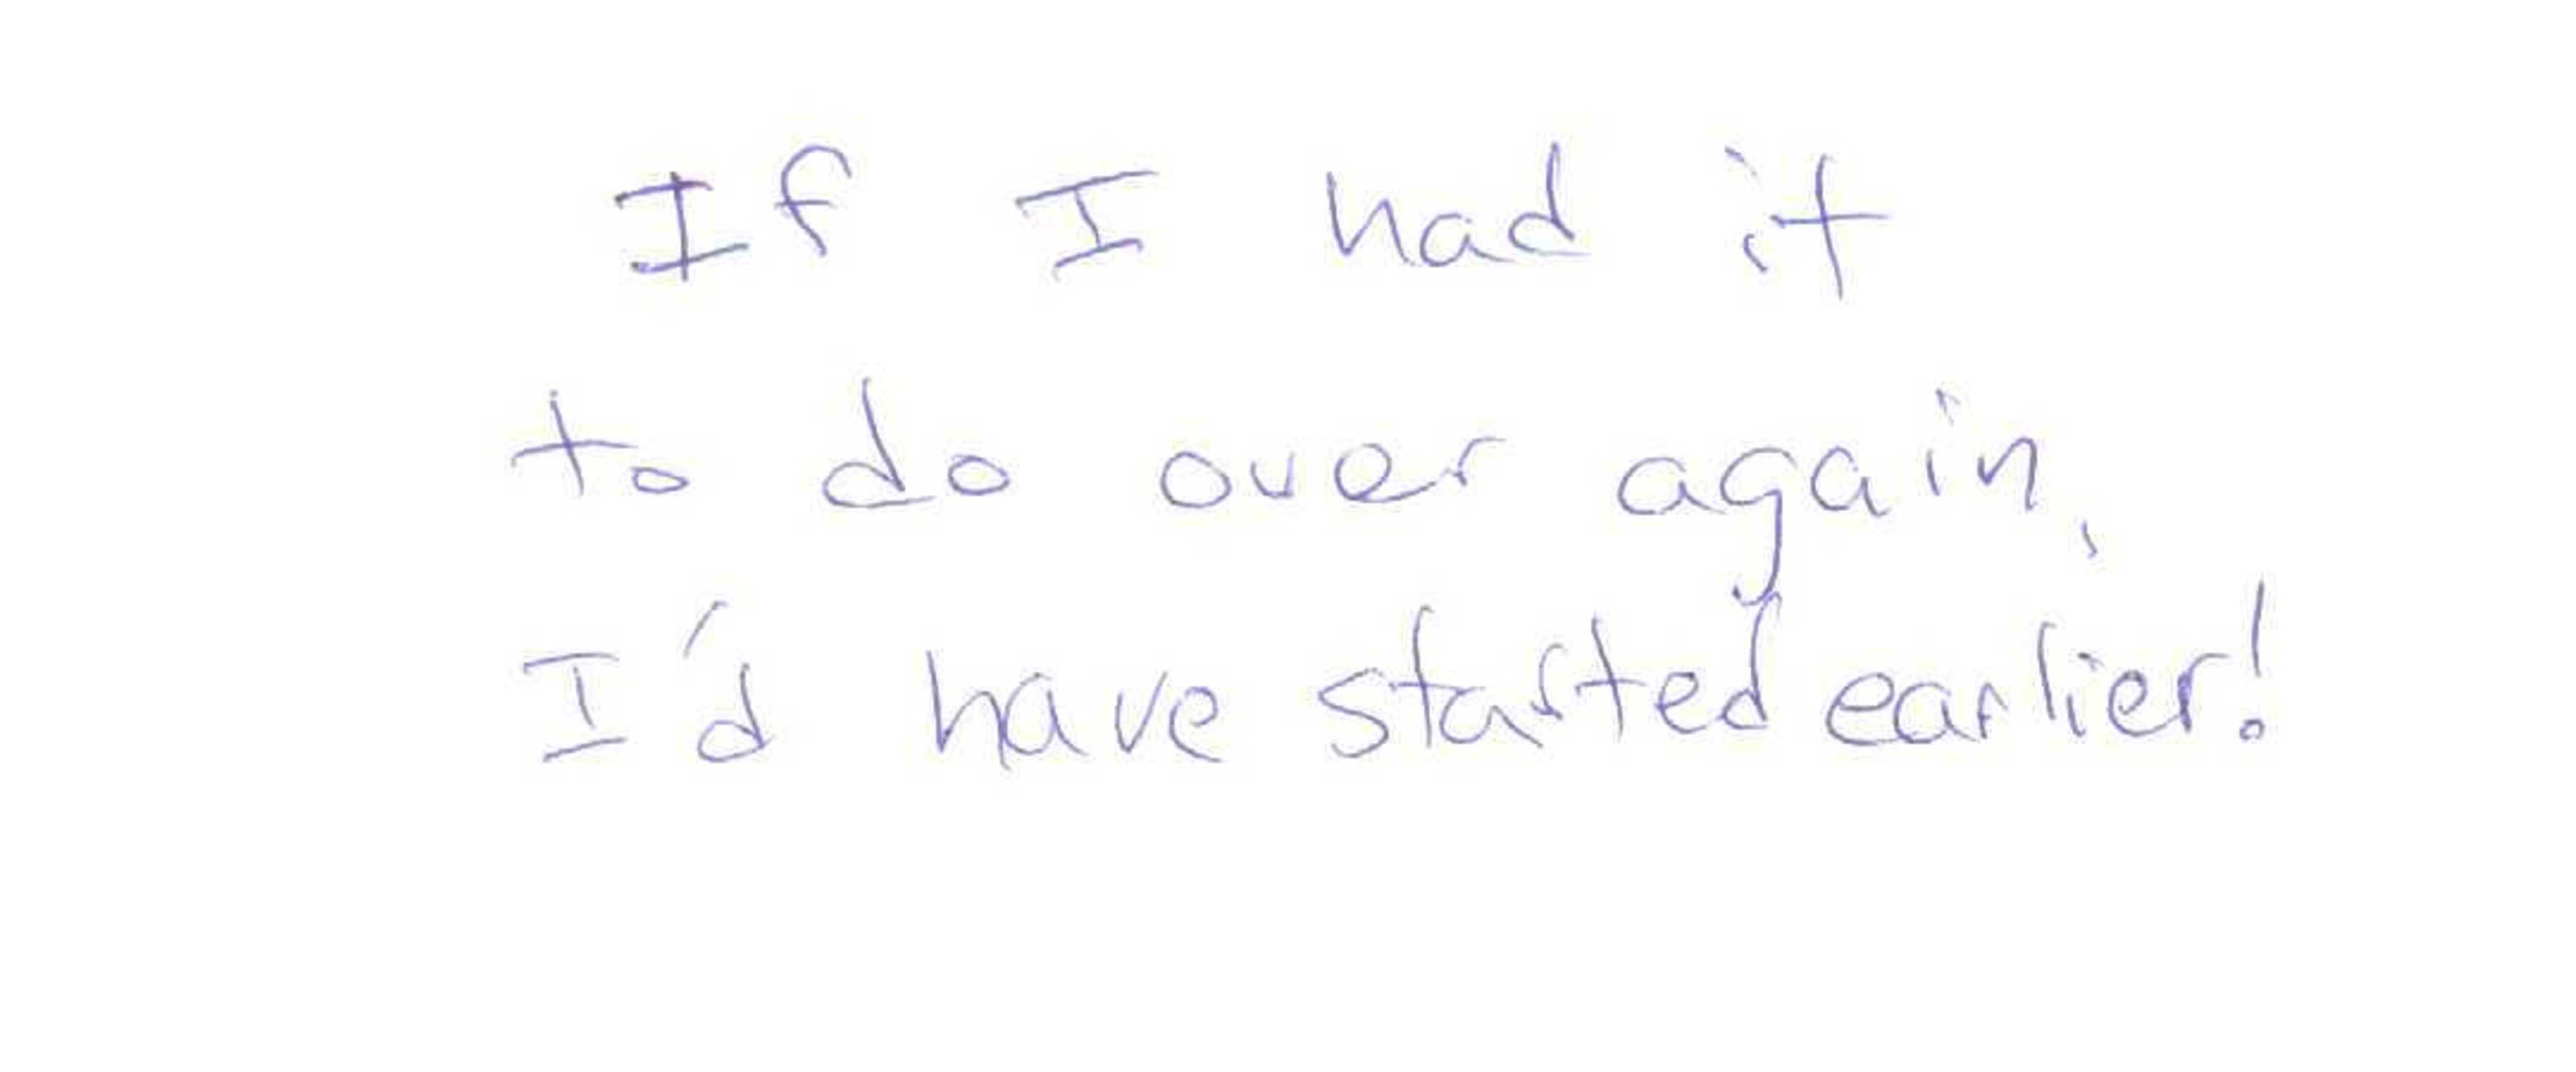 If I had it
to do over again,
I'd have started earlier!